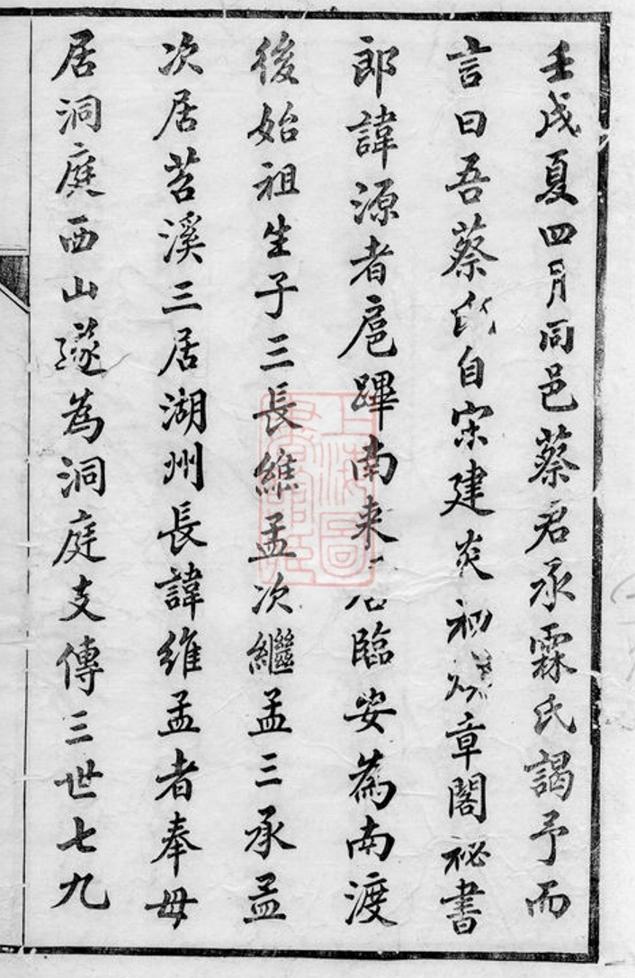 壬戌夏四月同邑蔡君承霖氏謁予而
言曰吾蔡氏自宋建炎初 章閣祕書
郎諱源者扈蹕南来居臨安為南渡
後始祖生子三長維孟次繼孟三承孟
次居苕溪三居湖州長諱維孟者奉母
居洞庭西山遂為洞庭支傳三世七九